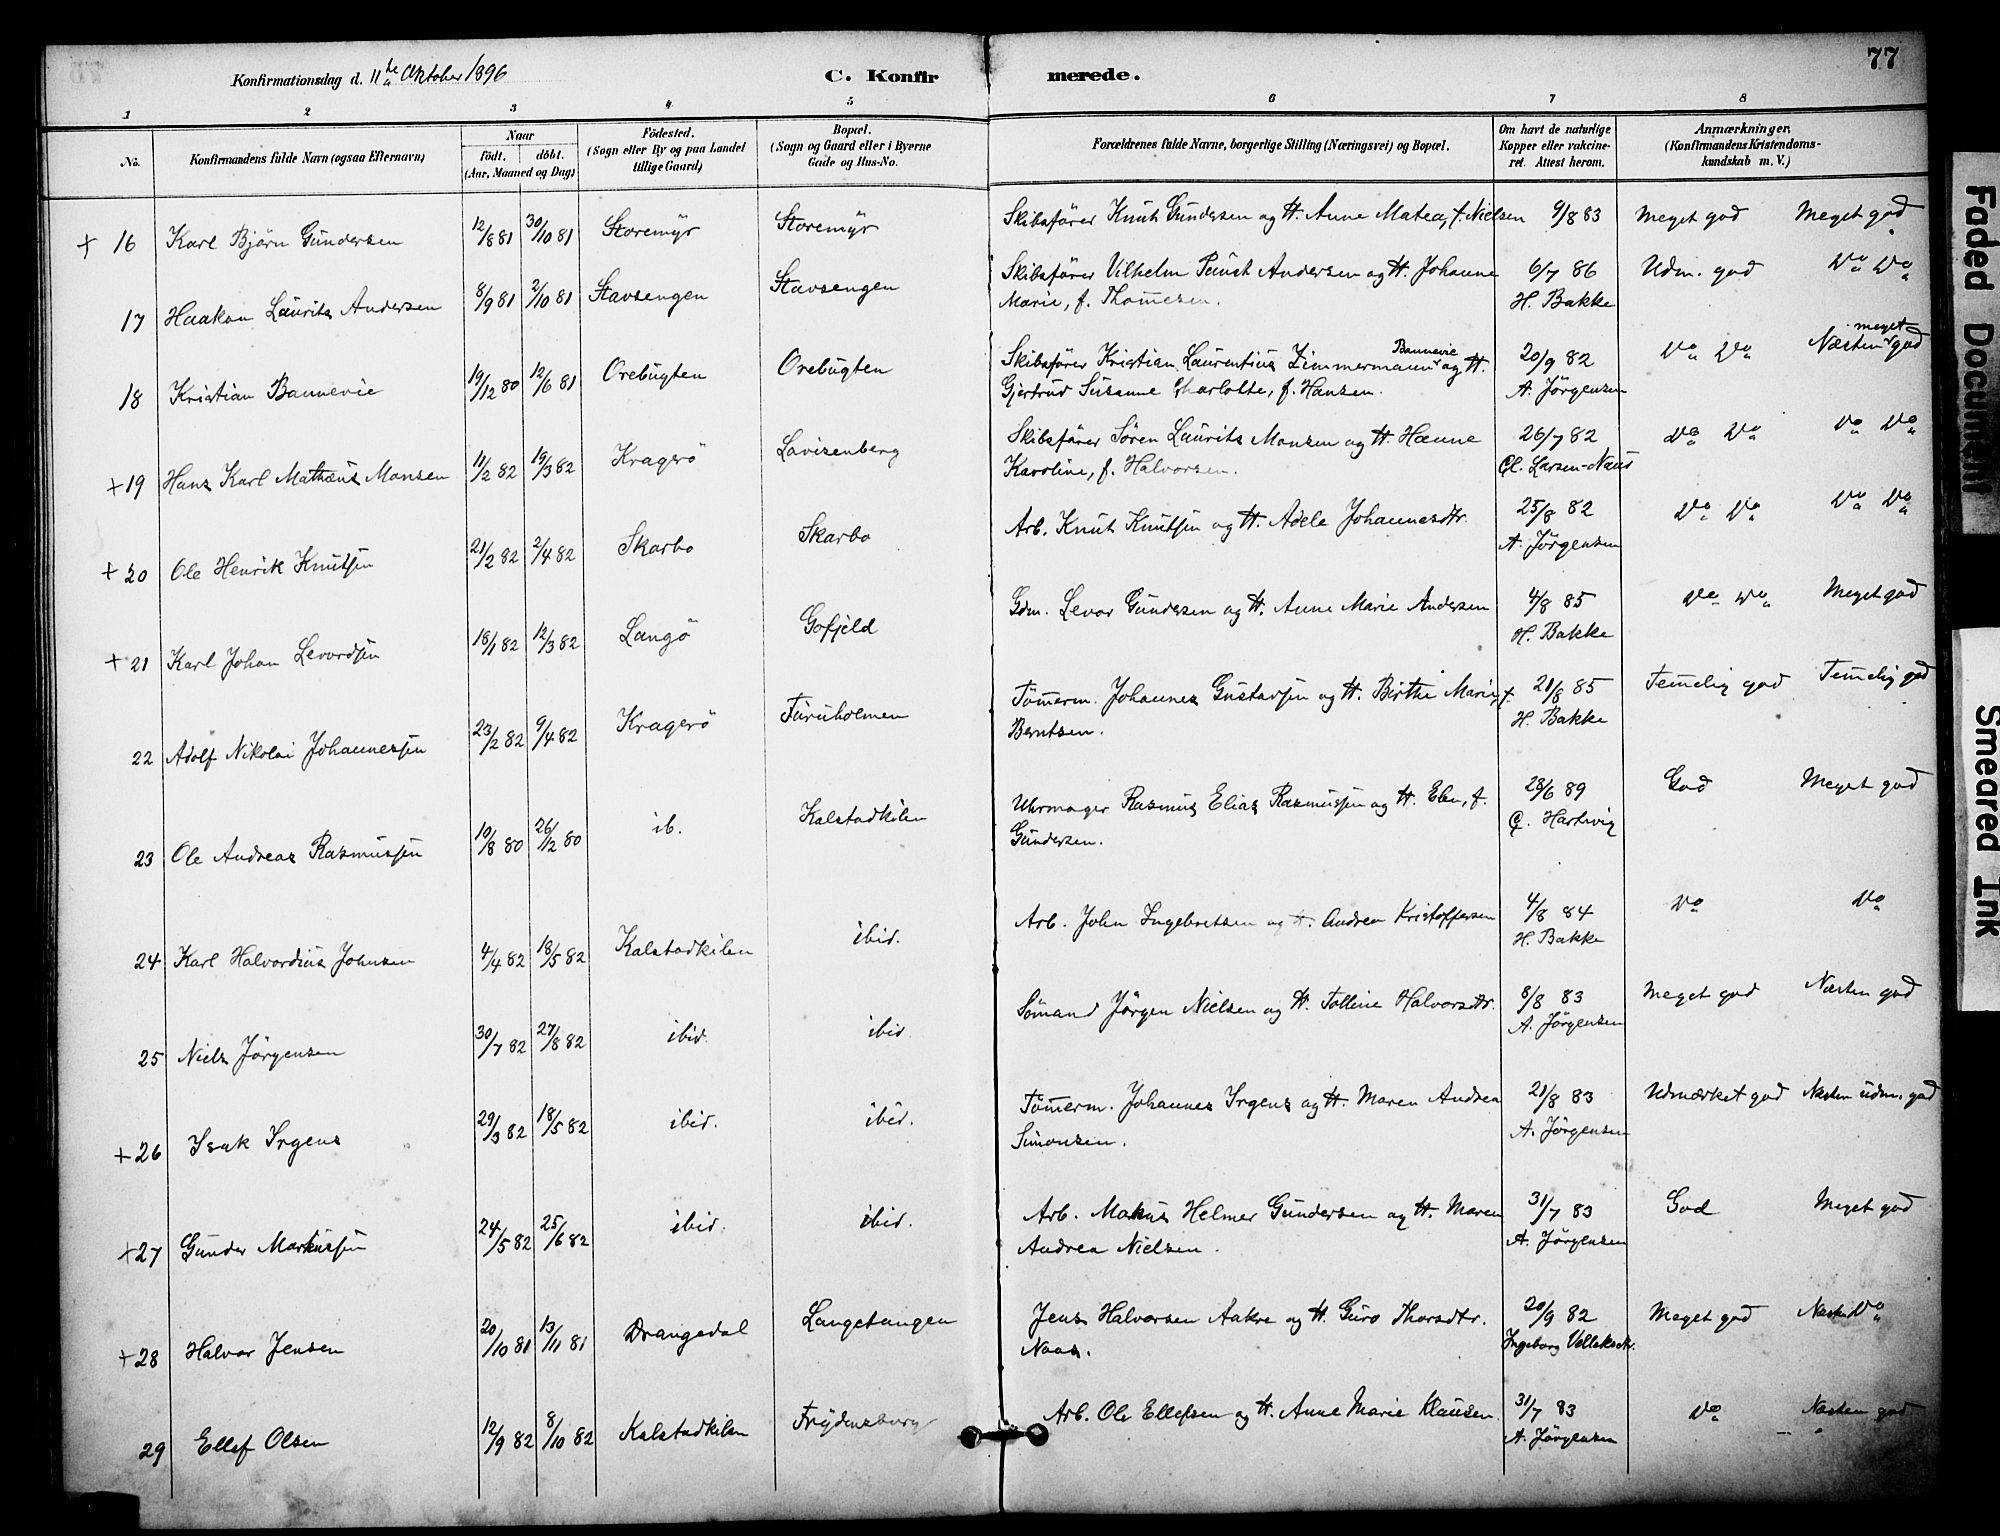 77
Konfirmationsdag d. 11te Oktober 1896
C. Konfirmerede.
1 2 3 4 5 6 7 8
No.
Konfirmandens fulde Navn (ogsaa Efternavn)
Naar
födt. döbt.
(Aar, Maaned og Dag)
Födested.
(Sogn eller By og paa Landet
tillige Gaard)
Bopæl.
(Sogn og Gaard eller i Byerne
Gade og Hus-No.
Forældrenes fulde Navne, borgerlige Stilling (Næringsvei) og Bopæl.
Om havt de naturlige
Kopper eller vakcine-
ret. Attest herom.
Anmærkninger.
(Konfirmandens Kristendoms-
kundskab m. V.)
+ 16 Karl Björn Gundersen 12/8 81 30/10 81 Storemyr Storemyr Skibsfører Knut Gundersen og H. Anne Matea, f. Nielsen 9/8 83 Meget god Meget god
17 Haakon Laurits Andersen 8/9 81 2/10 81 Stavsengen Stavsengen Skibsfører Vilhelm Faust Andersen og H. Johanne 6/7 86 Udm. god Do Do
Marie, f. Thomesen. H. Bakke
18 Kristian Bannevie 19/12 80 12/6 81 Orebugten Orebugten Skibsfører Kristian Laurentius Zimmermann Bannevie og H. 20/9 82 Do Do Næsten meget god
Gjertrud Susanne Charlotte, f. Hansen. A. Jörgensen
+ 19 Hans Karl Mathæus Monsen 11/2 82 19/3 82 Kragerö Lovisenberg Skibsfører Sören Laurits Monsen og H. Hanne 26/7 82 Do Do Do Do
Karoline, f. Halvorsen. Cl. Larsen-Naus
+ 20 Ole Henrik Knutsen 21/2 82 2/4 82 Skarbo Skarbo Arb. Knut Knutsen og H. Adele Johannesdtr. 25/8 82 Do Do Do Do
A. Jörgensen
+ 21 Karl Johan Levordsen 18/1 82 12/3 82 Langö Gofjeld Gdm. Levor Gundersen og H. Anne Marie Andersen 4/8 85 Do Do Meget god
H. Bakke
22 Adolf Nikolai Johannessen 23/2 82 9/4 82 Kragerö Furuholmen Tömerm. Johannes Gustavsen og H. Birthe Marie, f. 21/8 85 Temelig god Temelig god
Berntsen. H. Bakke
23 Ole Andreas Rasmussen 10/8 80 26/12 80 ib. Kalstadkilen Uhrmager Rasmus Elias Rasmussen og H. Elen, f. 28/6 89 God Meget god
Gundersen. C. Hartvig
24 Karl Halvordius Johnsen 4/4 82 18/5 82 Kalstadkilen ibid. Arb. John Ingebretsen og H. Andrea Kristoffersen 4/8 84 Do Do
H. Bakke
25 Niels Jörgensen 30/7 82 27/8 82 ibid. ibid. Sömand Jörgen Nielsen og H. Tolline Halvorsdtr. 8/8 83 Meget god Næsten god
A. Jörgensen
+ 26 Isak Irgens 29/3 82 18/5 82 ibid. ibid. Tömerm. Johannes Irgens og H. Maren Andrea 21/8 83 Udmærket god Næsten udm. god
Simonsen. A. Jörgensen
+ 27 Gunder Markussen 24/5 82 25/6 82 ibid. ibid. Arb. Makus Helmer Gundersen og H. Maren 31/7 83 God Meget god
Andrea Nielsen. A. Jörgensen
+ 28 Halvor Jensen 20/10 81 13/11 81 Drangedal Langetangen Jens Halvorsen Aakre og H. Guro Thorsdtr. 20/9 82 Meget god Næsten Do
Naas. Ingeborg
29 Ellef Olsen 12/9 82 8/10 82 Kalstadkilen Frydensborg Arb. Ole Ellefsen og H. Anne Marie Klausen. 31/7 83 Do Næsten god
A. Jörgensen
Faded Document
Smeared Ink